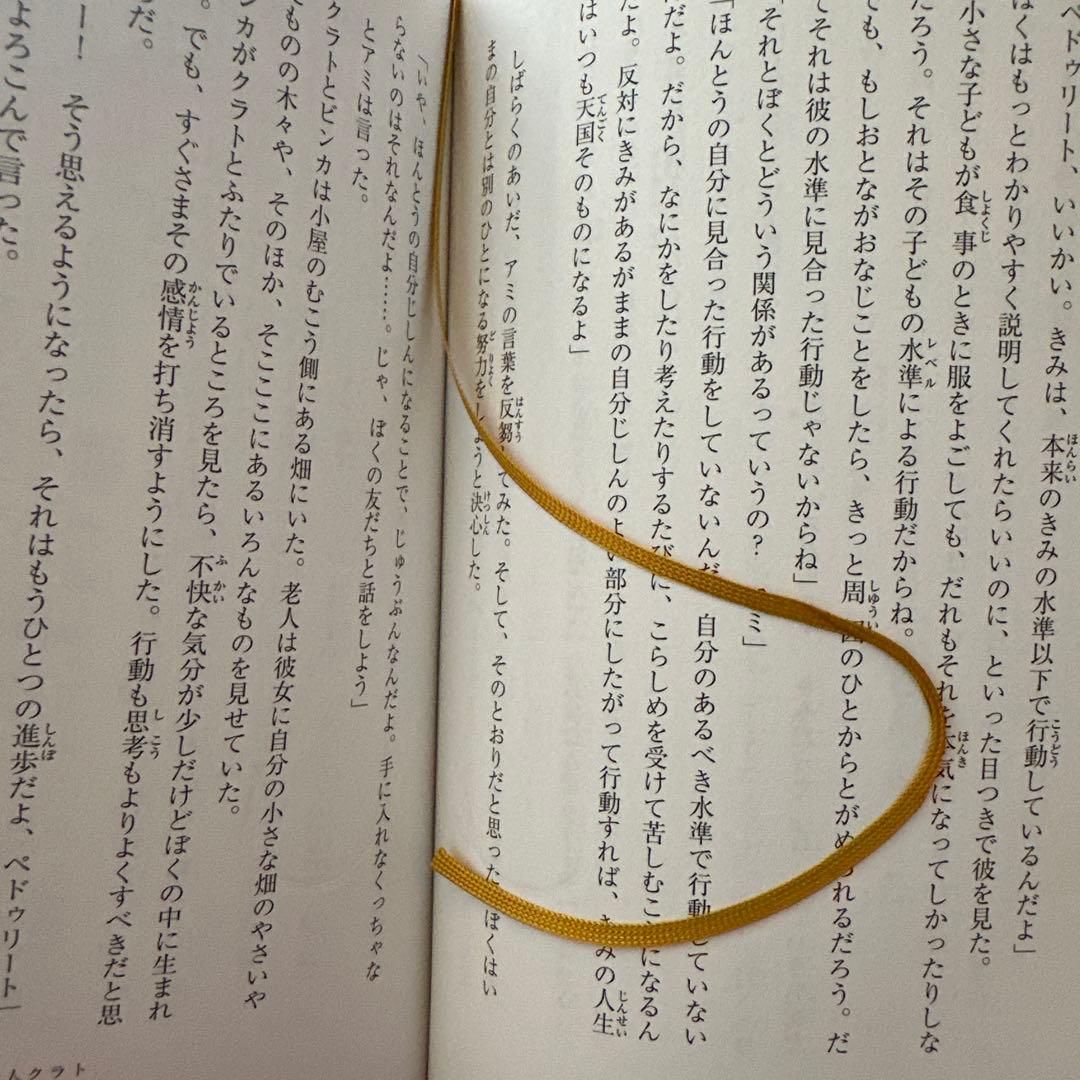 ペドゥリート、いいかい。きみは、本来のきみの水準以下で行動しているんだよ」
くはもっとわかりやすく説明してくれたらいいのに、といった目つきで彼を見た。
小さな子どもが食事のときに服をよごしても、だれもそれを本気になってしかったりしな
だろう。それはその子どもの水準による行動だからね。
ても、もしおとながおなじことをしたら、きっと周囲のひとからとがめられるだろう。だ
てそれは彼の水準に見合った行動じゃないからね」
それとぼくとどういう関係があるっていうの? アミ」
「ほんとうの自分に見合った行動をしていないんだ 自分のあるべき水準で行動していない
だよ。だから、なにかをしたり考えたりするたびに、こらしめを受けて苦しむことになるん
だよ。反対にきみがあるがままの自分じしんのよい部分にしたがって行動すれば、きみの人生
はいつも天国そのものになるよ」
しばらくのあいだ、アミの言葉を反芻してみた。そして、そのとおりだと思った ぼくはい
まの自分とは別のひとになる努力をしようと決心した。
〈いや、ほんとうの自分じしんになることで、じゅうぶんなんだよ。手に入れなくっちゃな
らないのはそれなんだよ……。じゃ、ぼくの友だちと話をしよう」
とアミは言った。
クラトとビンカは小屋のむこう側にある畑にいた。老人は彼女に自分の小さな畑のやさいや
てものの木々や、そのほか、そこここにあるいろんなものを見せていた。
ンカがクラトとふたりでいるところを見たら、不快な気分が少しだけどぼくの中に生まれ
。でも、すぐさまその感情を打ち消すようにした。行動も思考もよりよくすべきだと思
だ。
ー! そう思えるようになったら、それはもうひとつの進歩だよ、ペドゥリート」
よろこんで言った。
人クラト